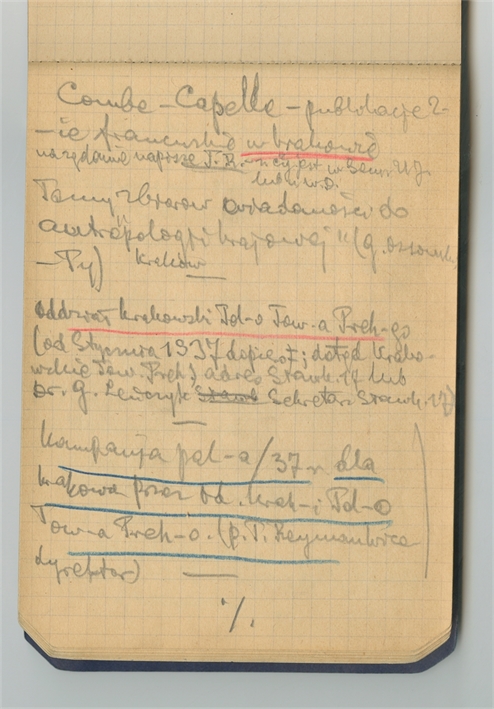 Combe-Capelle - publikacje 2-
-ie francuskie w Krakowie
na żądanie napisze T.R. czy jest w Sem. U.J.
lub i w.o.
Tomy zbiorów wiadomości do
antropologii krajowej" (g. ossowsk.
-Ty) Kraków
oddział krakowski Pol-o Tow-a Preh-go
(od Stycznia 1937 dopiero; dotąd krako-
wskie Tow. Preh) adres Sławk. 17 lub
Dr. g. Leńczyk Sekretarz Sławk. 17)
Kampanja pol-a/37 r dla
Krakowa przez od. krak-i Pol-o
Tow-a Preh-o. (p. T. Reymanówna
dyrektor)
./.